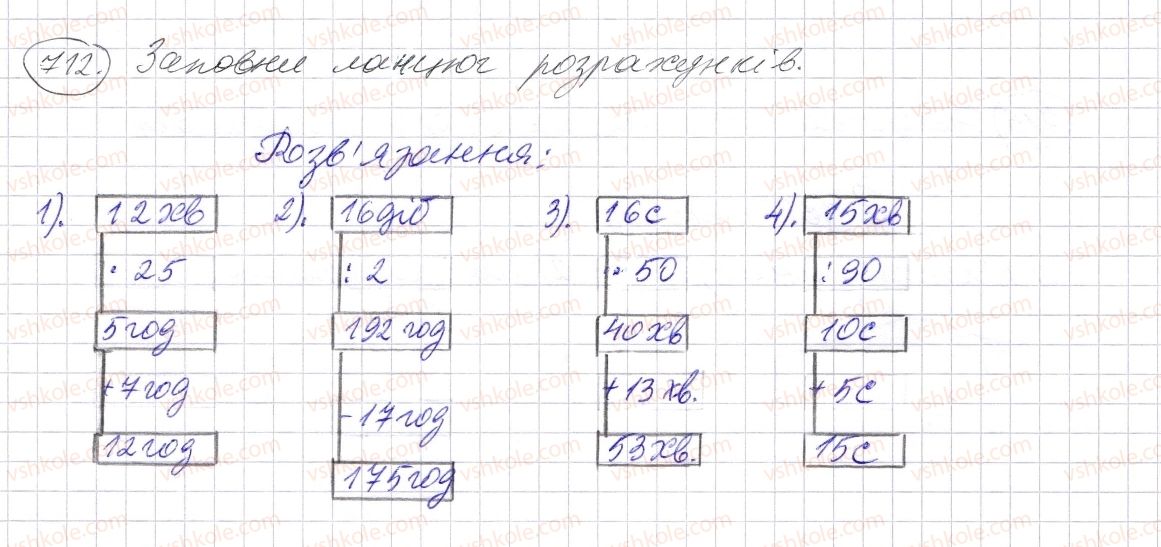 712. Заповни ланцюг розрахунків.
Розв'язання:
1). 12 хв 2). 16 діб 3). 16 с 4). 15 хв
· 25 : 2 · 50 : 90
5 год 192 год 40 хв 10 с
+ 7 год - 17 год + 13 хв. + 5 с
12 год 175 год 53 хв. 15 с